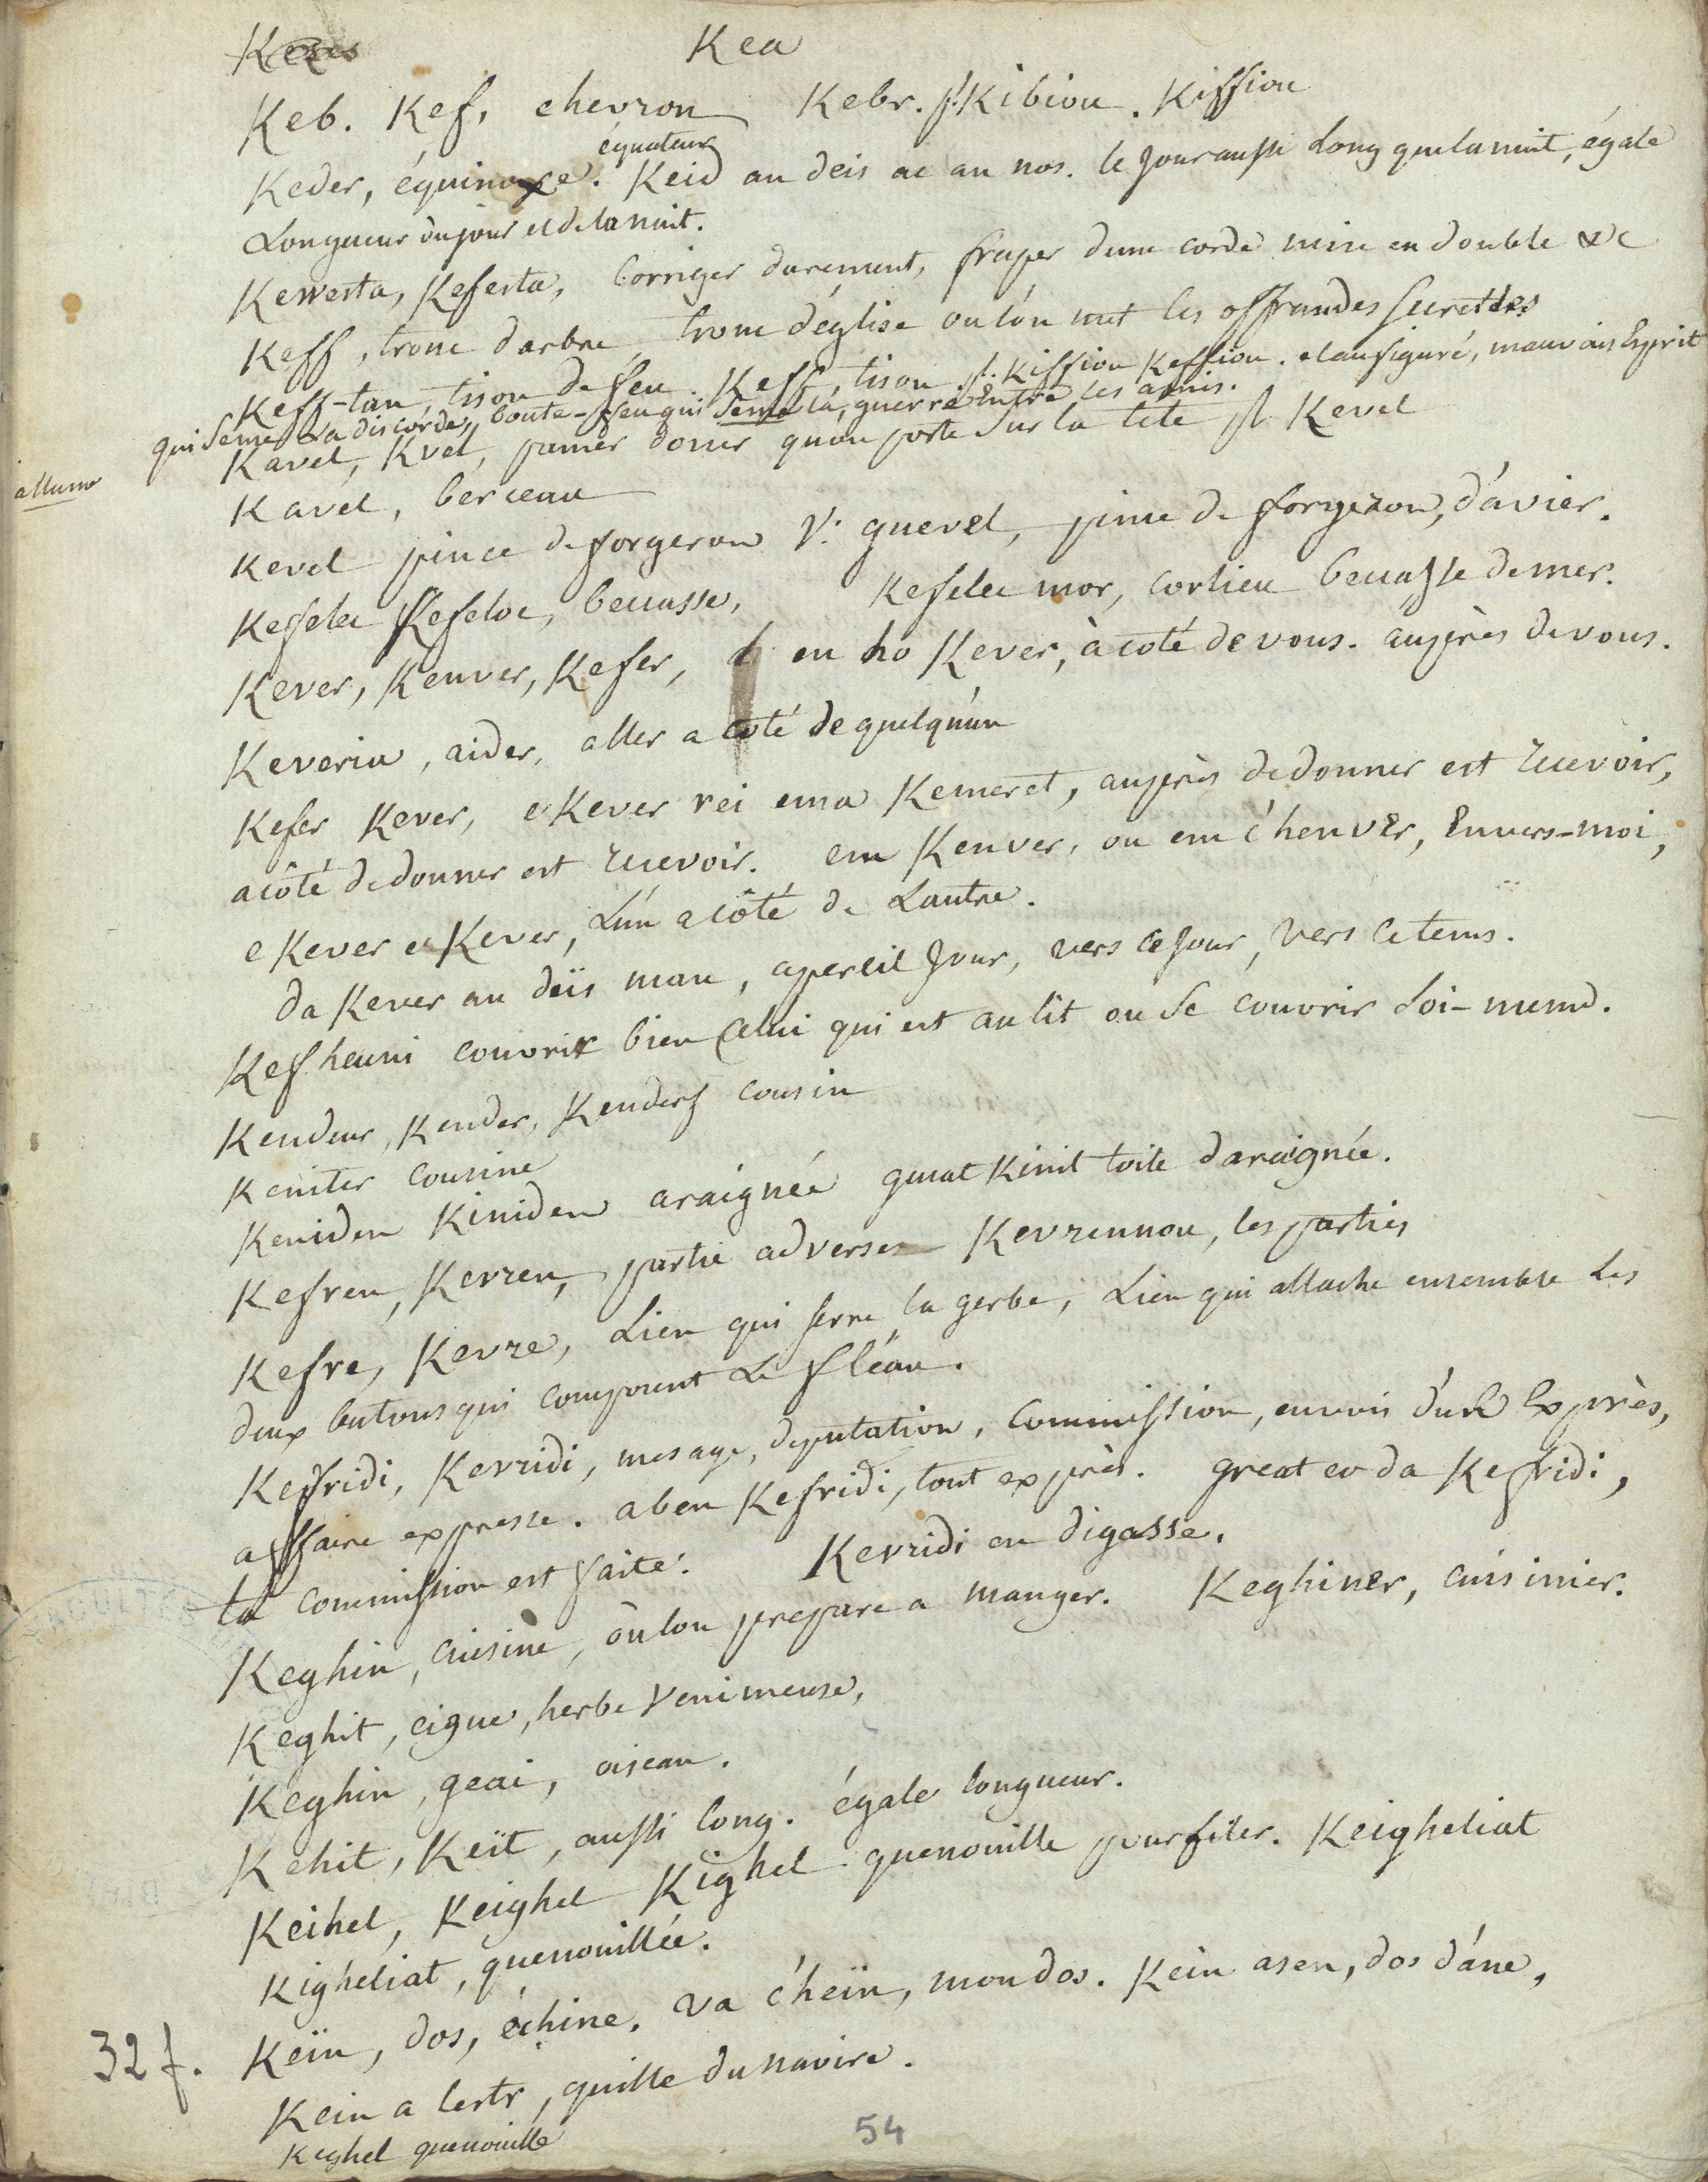 Kea
Keb. Kef, chevron Kebr. pl. Kibiou. Kiffiou
équateur
Keder, équinoxe. Keid an deis ac an nos. le Jour aussi Long que la nuit, égale
Longueur du jour et de la nuit.
Kewesta, Kefesta, Corriger durement, fraper d'une corde mise en double &c
Keff, tronc d'arbre, tronc d'église où l'on met les offrandes secrettes
Keff-tan tison de feu. Keff, tison pl. Kiffiou Keffiou. et au figuré, mauvais Esprit
qui seme la discorde, boute-feu qui seme la guerre Entre les amis.
allume
Kavel, Kvel, panier d'osier qu'on porte sur la tete pl Kevel
Kavel, berceau
Kevel pince de forgeron V. guevel, pince de forgeron, d'avier.
Kefelec Kefeloc, becasse, Kefelec mor, corlieu becasse de mer.
Kever, Kenver, Kefer, en ho Kever, à coté de vous. auprès de vous.
Keveria, aider, aller a coté de quelqu'un
Kefer Kever, e Kever rei ema Kemeret, auprès de donner est recevoir,
a côté de donner est recevoir. em Kenver, ou em c'henver, Envers-moi,
e Kever e Kever, L'un a côté de L'autre.
da Kever an deïs man, a pareil Jour, vers ce Jour, vers ce tems.
Kefheuni couvrir bien Celui qui est au lit ou se couvrir soi-meme.
Kendeur, Kender, Kenderf cousin
Keniter cousine
Keniden Kiniden araignée guiat Kinit toile d'araignée.
Kefren, Kevren, partie adverse Kevrennou, les parties
Kefre, Kevre, Lien qui serre la gerbe, Lien qui attache ensemble Les
deux batons qui composent Le fléau.
Keffridi, Kevridi, mesage, deputation, Commission, envois d'un Exprès,
affaire expresse. a ben Kefridi, tout exprès. great eo da Kefridi,
ta commission est faite. Kevridi en digasse.
Keghin, cuisine, où l'on prepare a manger. Keghiner, cuisinier.
Keghit, cigue, herbe Venimeuse,
Keghin, geai, oiseau.
Kehit, Keit, aussi long. égale longueur.
Keihel, Keighel Kighel quenouille pour filer. Keigheliat
Kigheliat, quenouillée.
Keïn, dos, échine, va c'heïn, mon dos. Kein asen, dos d'âne,
32 f.
Kein a lestr, quille du navire.
Keghel quenouille
54